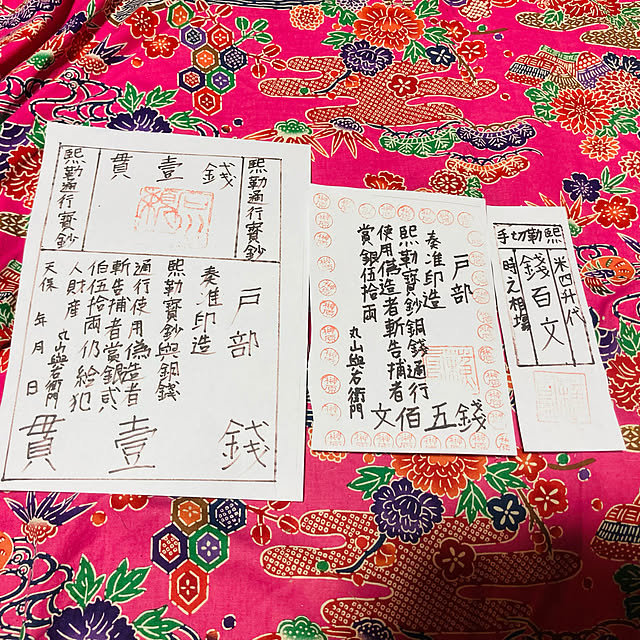 熙勤通行寳鈔
錢壹貫
熙勤通行寳鈔
戸部
奏准印造
熙勤寳鈔與銅錢
通行使用偽造者
斬告捕者賞銀貳
伯伍拾兩仍給犯
人財産 丸山與右衛門
天保 年 月 日
錢壹貫
戸部
奏准印造
熙勤寳鈔銅錢通行
使用偽造者斬告捕者
賞銀伍拾兩
丸山與右衛門
錢五佰文
熙勤切手
米四升代
錢百文
時之相場